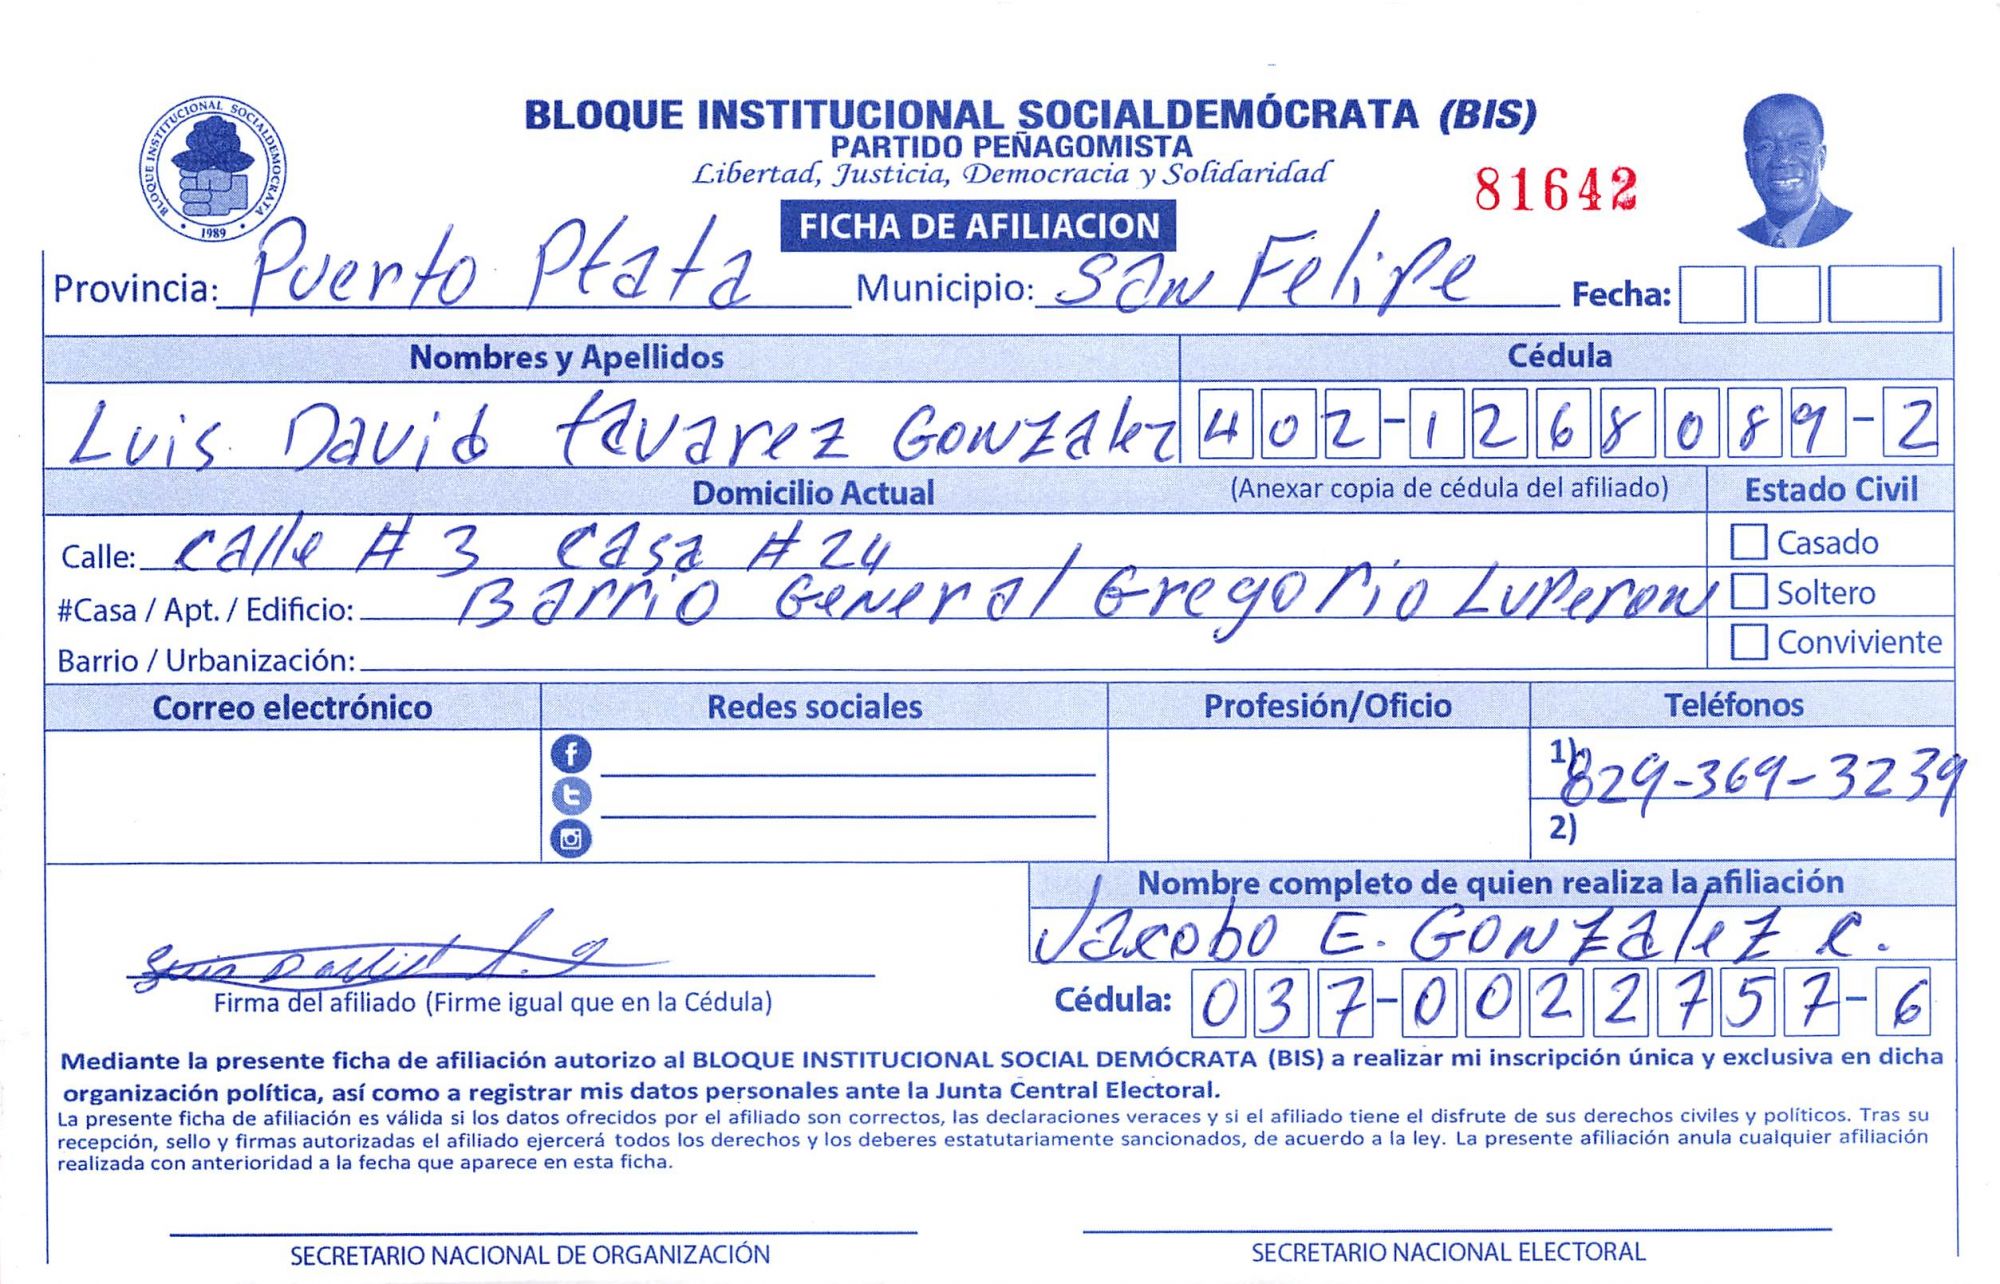 BLOQUE INSTITUCIONAL SOCIALDEMOCRATA
1989
BLOQUE INSTITUCIONAL SOCIALDEMÓCRATA (BIS)
PARTIDO PEÑAGOMISTA
Libertad, Justicia, Democracia y Solidaridad
81642
FICHA DE AFILIACION
Provincia: Puerto Plata Municipio: San Felipe Fecha:
Nombres y Apellidos Cédula
Luis David tavarez Gonzalez 402-1268089-2
Domicilio Actual (Anexar copia de cédula del afiliado) Estado Civil
Calle: calle # 3 casa #24 Casado
#Casa / Apt. / Edificio: Barrio General Gregorio Luperon Soltero
Barrio / Urbanización: Conviviente
Correo electrónico Redes sociales Profesión/Oficio Teléfonos
1) 829-369-3239
2)
Nombre completo de quien realiza la afiliación
Jacobo E. Gonzalez c.
Luis David
Firma del afiliado (Firme igual que en la Cédula) Cédula: 037-0022757-6
Mediante la presente ficha de afiliación autorizo al BLOQUE INSTITUCIONAL SOCIAL DEMÓCRATA (BIS) a realizar mi inscripción única y exclusiva en dicha
organización política, así como a registrar mis datos personales ante la Junta Central Electoral.
La presente ficha de afiliación es válida si los datos ofrecidos por el afiliado son correctos, las declaraciones veraces y si el afiliado tiene el disfrute de sus derechos civiles y políticos. Tras su
recepción, sello y firmas autorizadas el afiliado ejercerá todos los derechos y los deberes estatutariamente sancionados, de acuerdo a la ley. La presente afiliación anula cualquier afiliación
realizada con anterioridad a la fecha que aparece en esta ficha.
SECRETARIO NACIONAL DE ORGANIZACIÓN SECRETARIO NACIONAL ELECTORAL